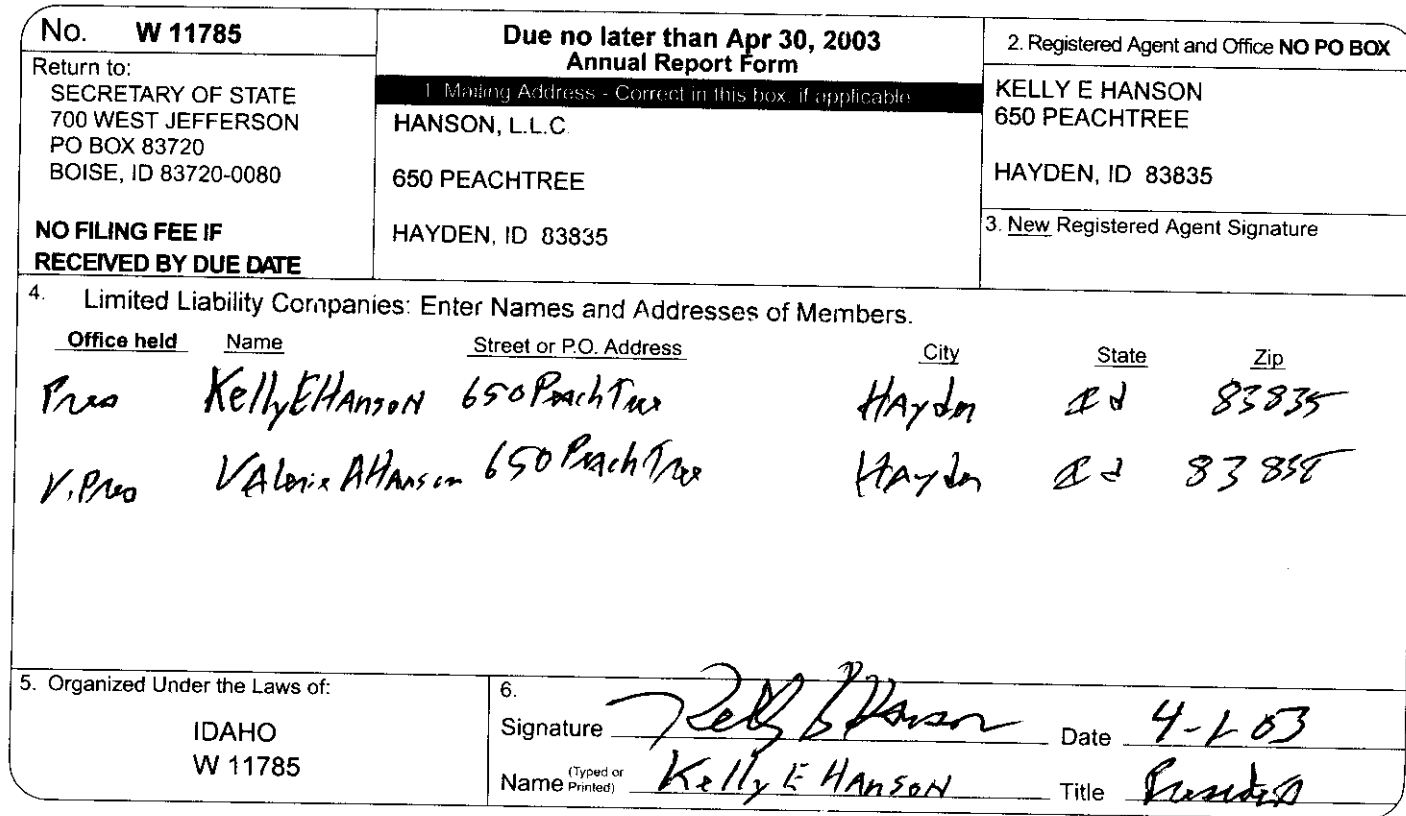 No. W 11785
Return to:
SECRETARY OF STATE
700 WEST JEFFERSON
PO BOX 83720
BOISE, ID 83720-0080
NO FILING FEE IF
RECEIVED BY DUE DATE
Due no later than Apr 30, 2003
Annual Report Form
1. Mailing Address - Correct in this box, if applicable
HANSON, L.L.C.
650 PEACHTREE
HAYDEN, ID 83835
2. Registered Agent and Office NO PO BOX
KELLY E HANSON
650 PEACHTREE
HAYDEN, ID 83835
3. New Registered Agent Signature
4. Limited Liability Companies: Enter Names and Addresses of Members.
Office held Name Street or P.O. Address City State Zip
Pres Kelly E Hanson 650 PeachTree Hayden Id 83835
V. Pres Valerie A Hanson 650 PeachTree Hayden Id 83835
5. Organized Under the Laws of:
IDAHO
W 11785
6.
Signature Kelly E Hanson Date 4-1-03
Name (Typed or Printed) Kelly E Hanson Title President